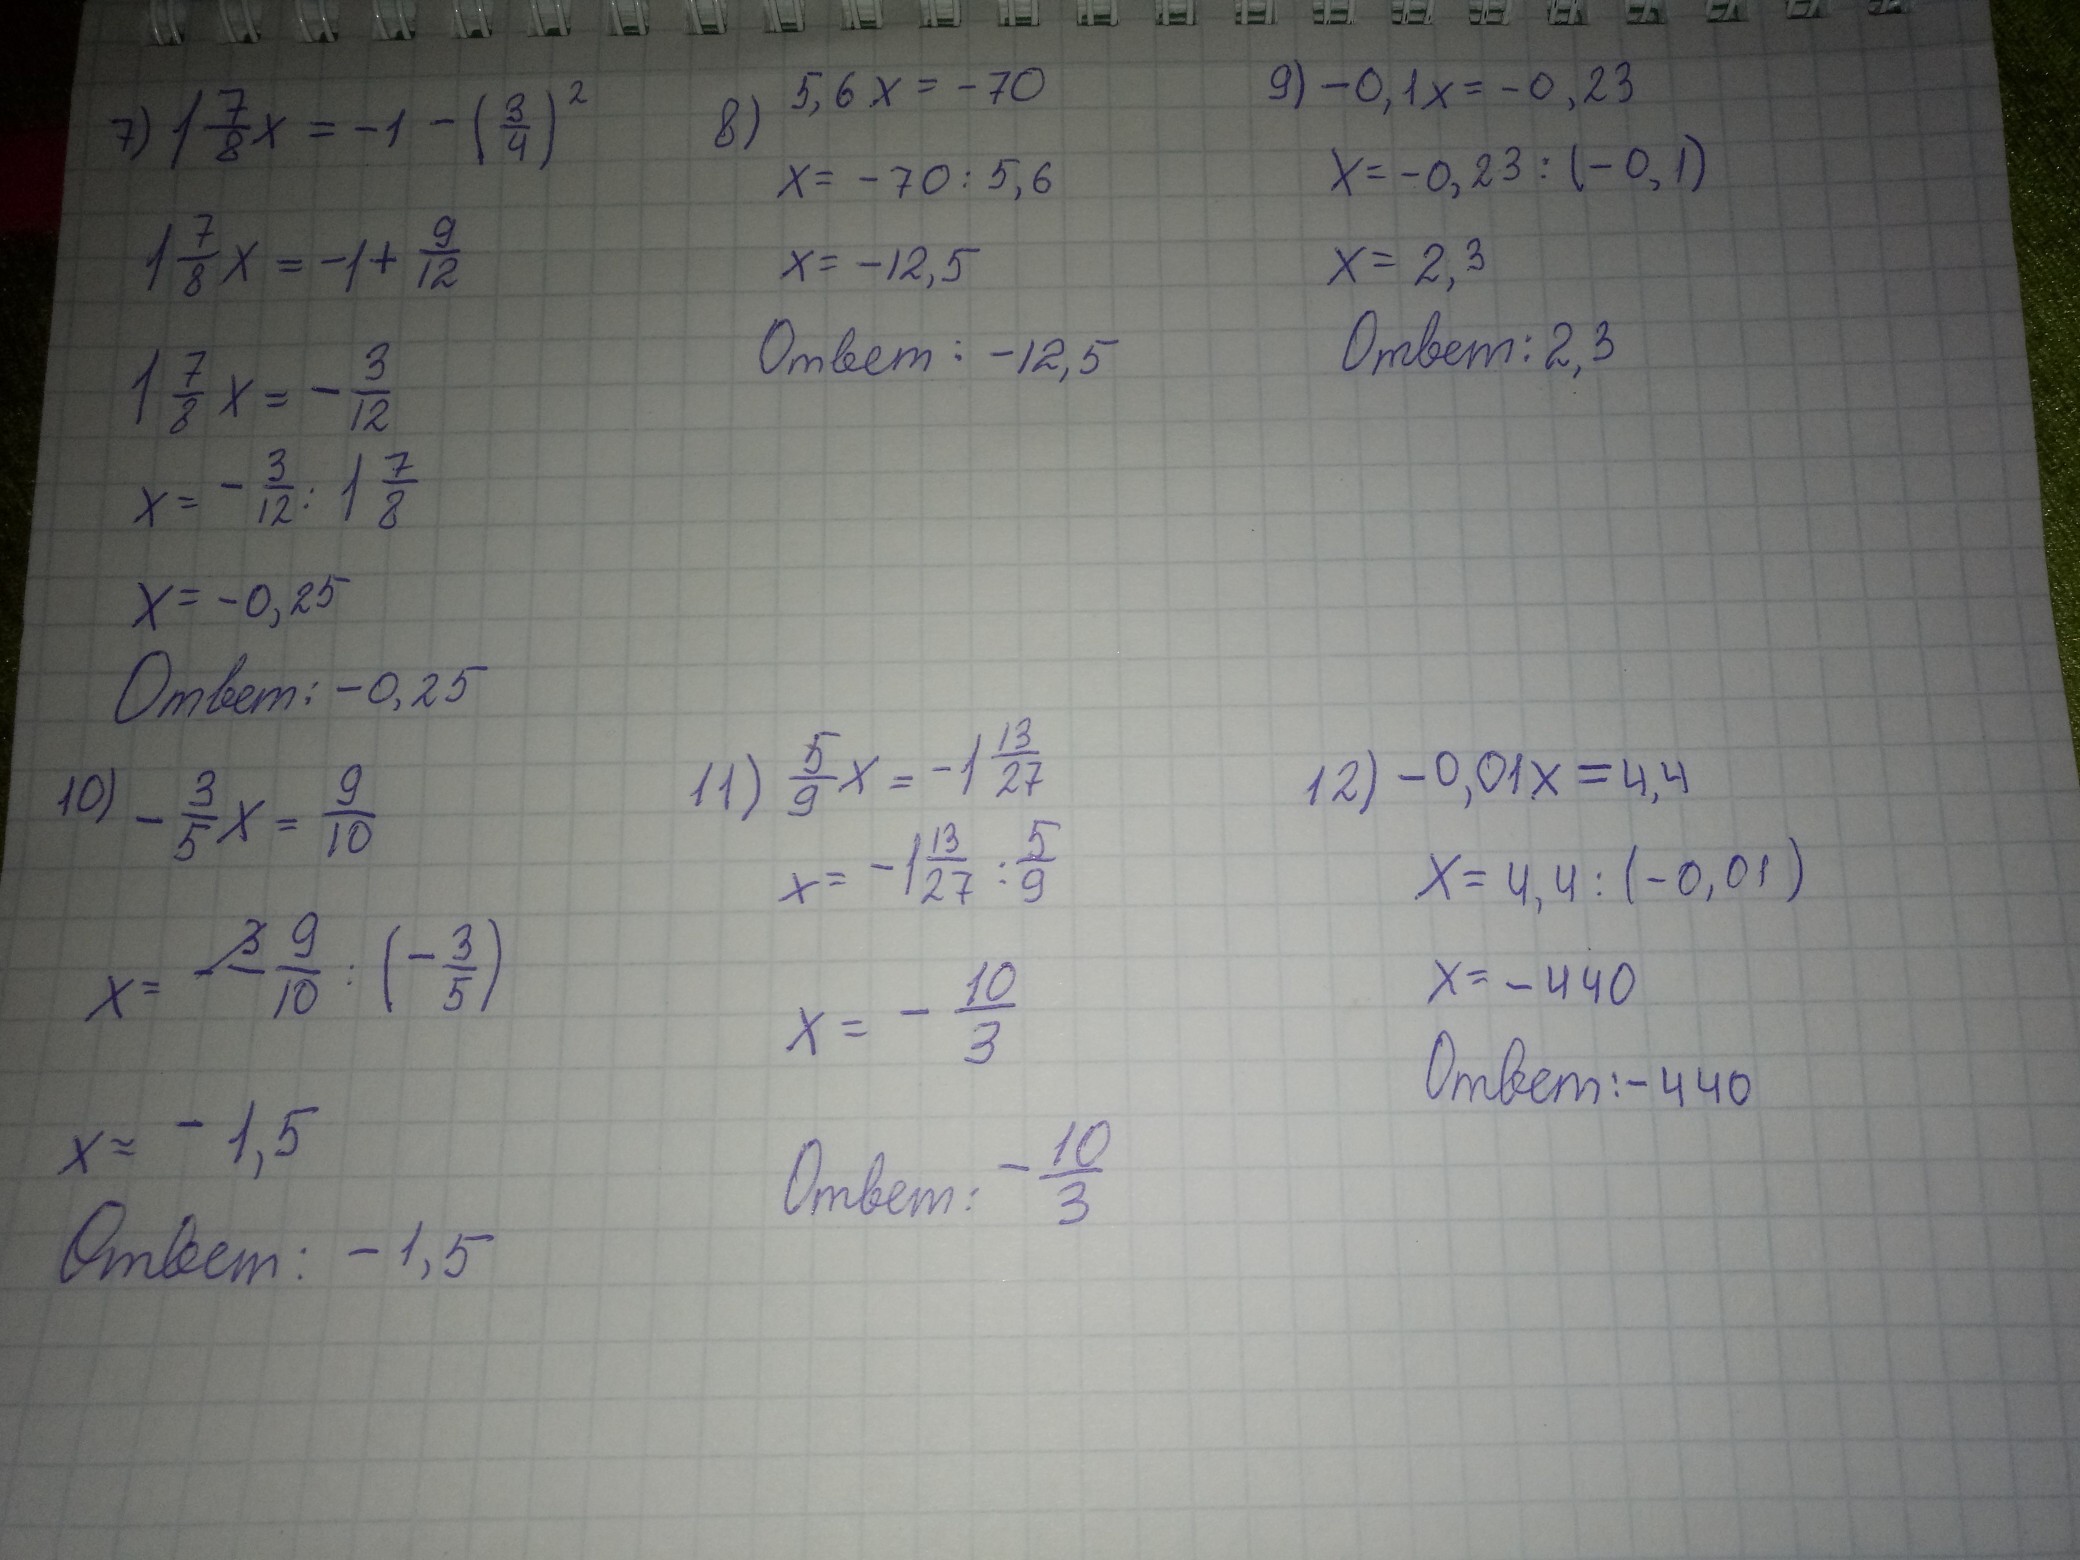 7) 1 7/8 x = -1 - (3/4)²
1 7/8 x = -1 + 9/12
1 7/8 x = - 3/12
x = - 3/12 : 1 7/8
x = -0,25
Ответ: -0,25
8) 5,6 x = -70
x = -70 : 5,6
x = -12,5
Ответ: -12,5
9) -0,1x = -0,23
x = -0,23 : (-0,1)
x = 2,3
Ответ: 2,3
10) - 3/5 x = 9/10
x = 9/10 : (- 3/5)
x = -1,5
Ответ: -1,5
11) 5/9 x = -1 13/27
x = -1 13/27 : 5/9
x = - 10/3
Ответ: - 10/3
12) -0,01x = 4,4
x = 4,4 : (-0,01)
x = -440
Ответ: -440